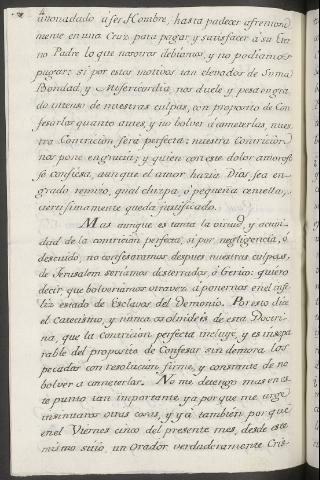 anonadado à ser Hombre, hasta padecer afrentosa
mente en una Cruz, para pagar y satisfacer à su Eter
no Padre lo que nosotros debiamos, y no podiamos
pagar; si por estos motivos tan elevados de Suma
Bondad, y Misericordia, nos duele y pesa en gra
do intenso de nuestras culpas, con proposito de Con
fesarlas quanto antes, y no bolver à cometerlas, nues
tra Contricion será perfecta; nuestra Contricion
nos pone en gracia; y quien con este dolor amoroso
se confiesa, aunque el amor hazia Dios sea en
grado remiso, qual chispa, ó pequeña centella,
certissimamente queda justificado.
Mas aunque es tanta la virtud y activi
dad de la contricion perfecta, si por negligencia, ó
descuido, no confesaramos despues nuestras culpas,
de Jerusalem seriamos desterrados à Gericó: quiero
decir que bolveriamos otra vez à ponernos en el infe
liz estado de Esclavos del Demonio. Por esto dice
el Catecismo, y nunca os olvideis de esta Doctri
na, que la Contricion perfecta incluye, y es insepa
rable del proposito de Confesar sin demora los
pecados con resolucion firme, y constante de no
bolver a cometerlos. No me detengo mas en es
te punto tan importante ya porque me urge
insinuaros otras cosas, y yà tambien porque
en el Viernes cinco del presente mes, desde este
mismo sitio, un Orador verdaderamente Cris